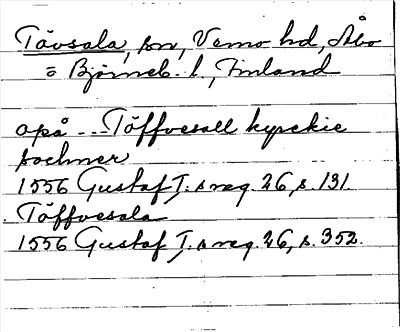 Tövsala, sn, Vemo hd, Åbo
o Björneb. l., Finland
opå -- Töffvesall kyrckie
sochner
1556 Gustaf I:s reg. 26, s. 131.
Töffvesala
1556 Gustaf I:s reg. 26, s. 352.